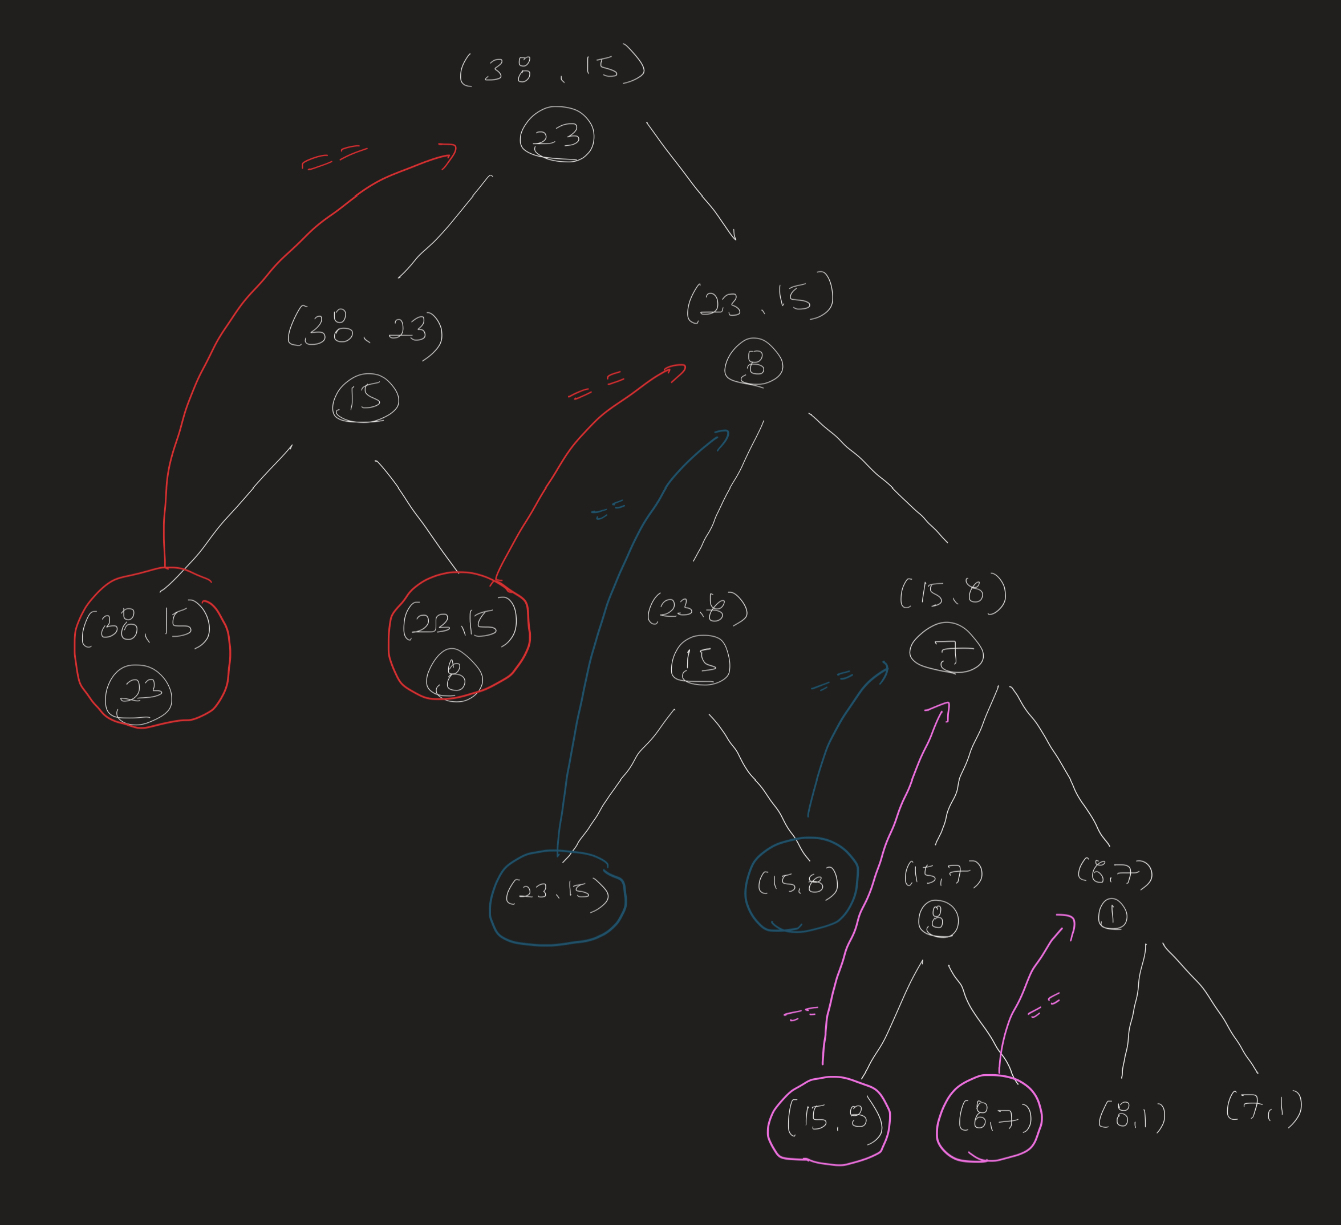 (38, 15)
23
==
(23, 15)
8
(38, 23)
15
==
==
(38, 15)
23
(23, 15)
8
(23, 8)
15
(15, 8)
7
==
(23, 15)
(15, 8)
(15, 7)
8
(8, 7)
1
==
==
(15, 8)
(8, 7)
(8, 1)
(7, 1)